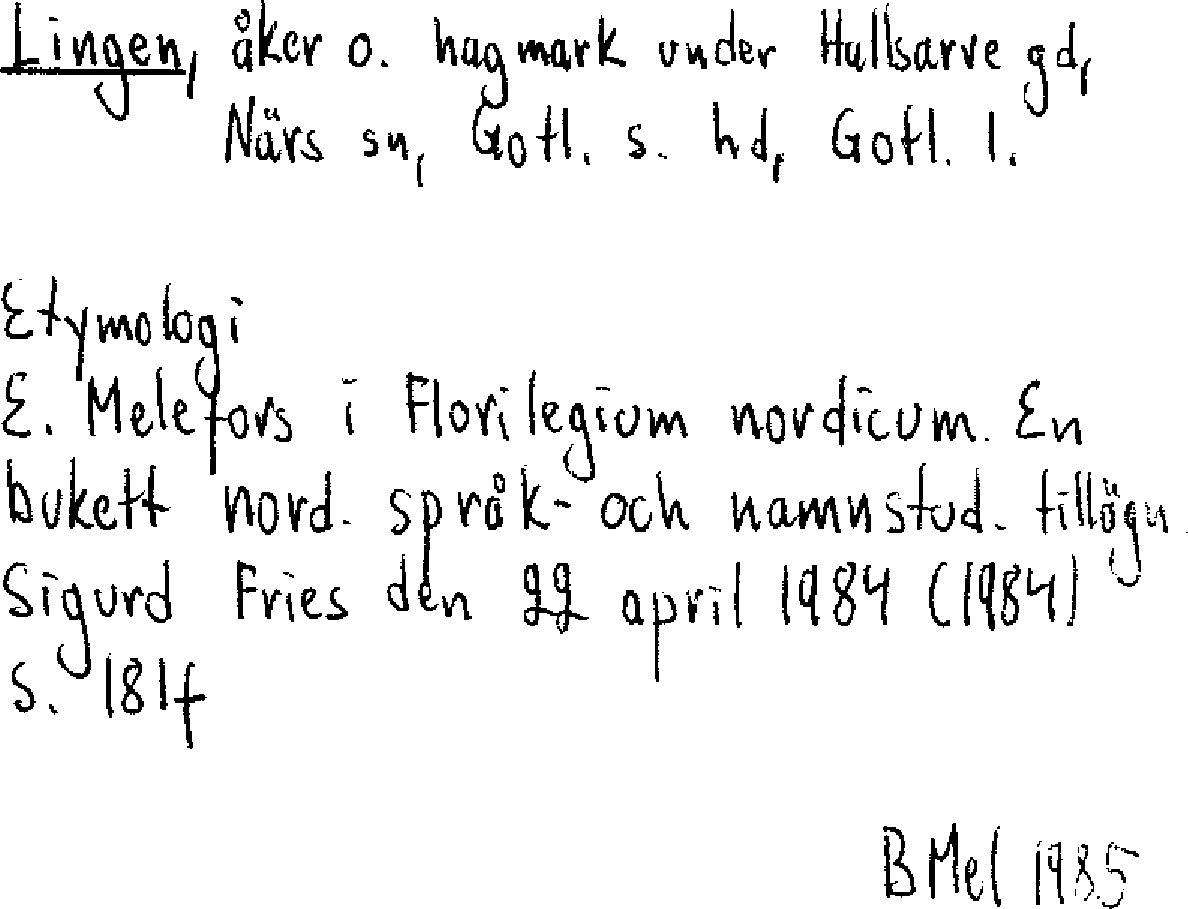 Lingen, åker o. hagmark under Hallsarve gd,
Närs sn, Gotl. s. hd, Gotl. l.
Etymologi
E. Melefors i Florilegium nordicum. En
bukett nord. språk- och namnstud. tillägn.
Sigurd Fries den 22 april 1984 (1984)
s. 181f
B Mel 1985